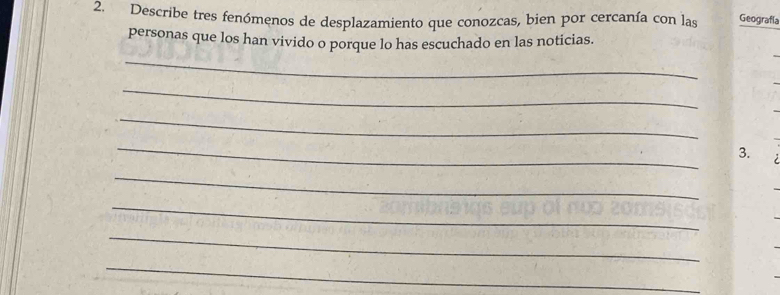 2. Describe tres fenómenos de desplazamiento que conozcas, bien por cercanía con las
personas que los han vivido o porque lo has escuchado en las noticias.
Geografía
3. ¿